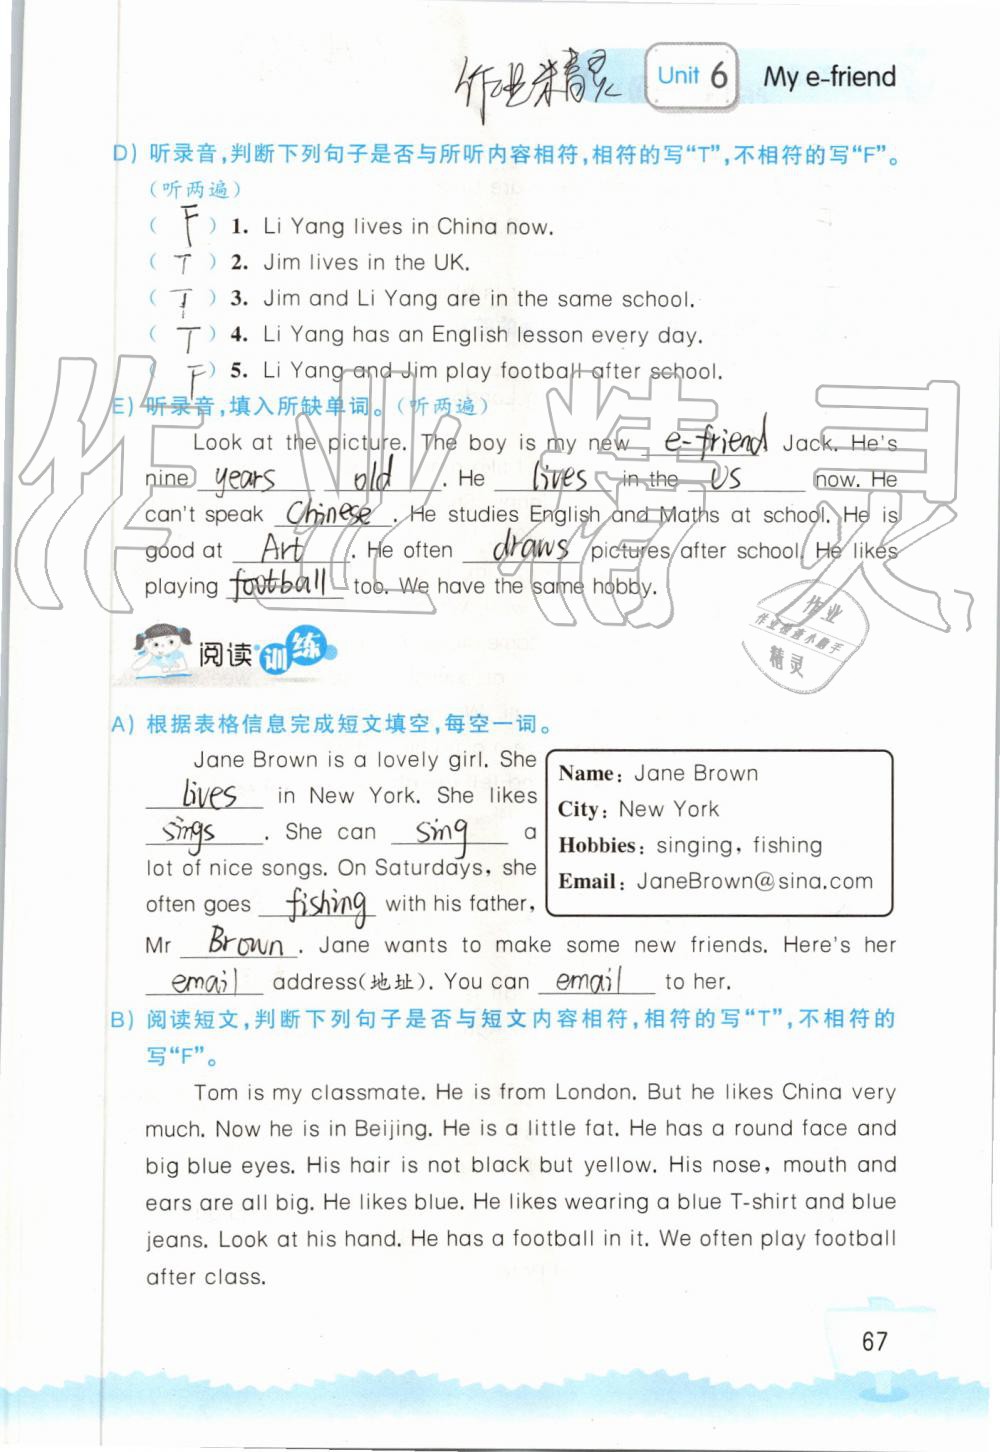 作业精灵
Unit 6 My e-friend
D) 听录音,判断下列句子是否与所听内容相符,相符的写“T”,不相符的写“F”。
(听两遍)
( F ) 1. Li Yang lives in China now.
( T ) 2. Jim lives in the UK.
( T ) 3. Jim and Li Yang are in the same school.
( T ) 4. Li Yang has an English lesson every day.
( F ) 5. Li Yang and Jim play football after school.
E) 听录音,填入所缺单词。(听两遍)
Look at the picture. The boy is my new e-friend Jack. He's
nine years old . He lives in the US now. He
can't speak Chinese . He studies English and Maths at school. He is
good at Art . He often draws pictures after school. He likes
playing football too. We have the same hobby.
作业
作业检查小助手
精灵
阅读训练
A) 根据表格信息完成短文填空,每空一词。
Jane Brown is a lovely girl. She
lives in New York. She likes
sings . She can sing a
lot of nice songs. On Saturdays, she
often goes fishing with his father,
Mr Brown . Jane wants to make some new friends. Here's her
email address(地址). You can email to her.
Name: Jane Brown
City: New York
Hobbies: singing, fishing
Email: JaneBrown@sina.com
B) 阅读短文,判断下列句子是否与短文内容相符,相符的写“T”,不相符的
写“F”。
Tom is my classmate. He is from London. But he likes China very
much. Now he is in Beijing. He is a little fat. He has a round face and
big blue eyes. His hair is not black but yellow. His nose, mouth and
ears are all big. He likes blue. He likes wearing a blue T-shirt and blue
jeans. Look at his hand. He has a football in it. We often play football
after class.
67
作业精灵